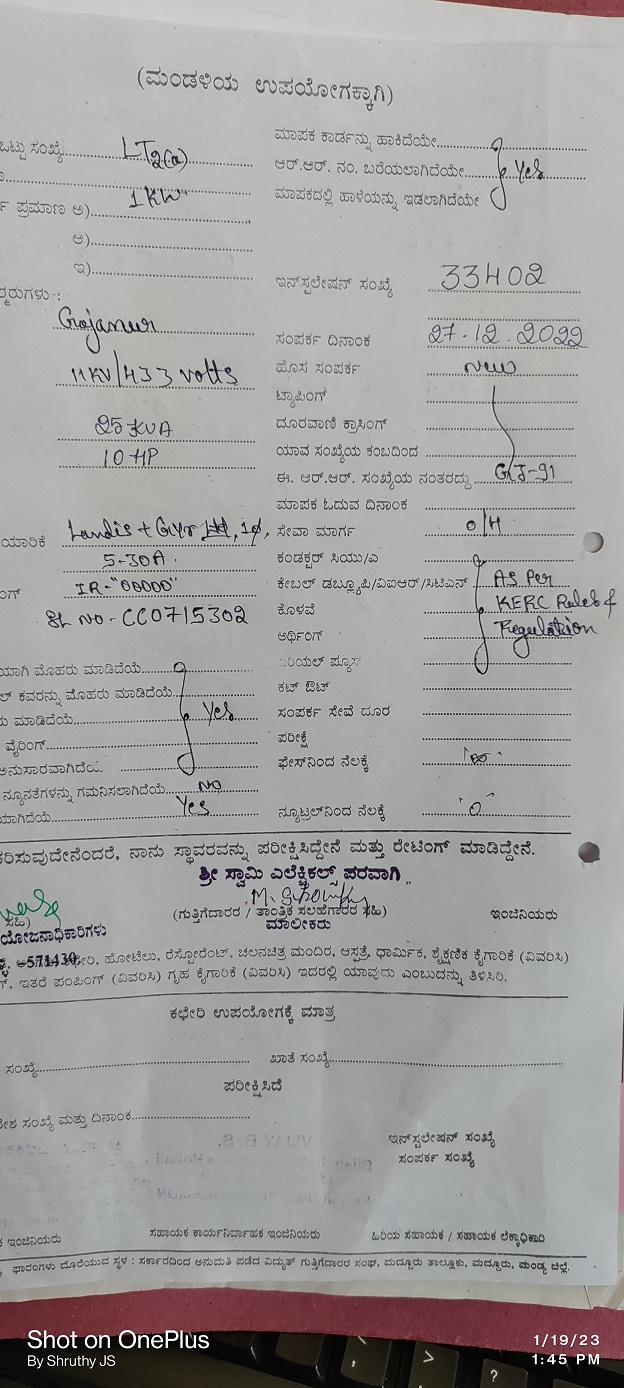 (ಮಂಡಳಿಯ ಉಪಯೋಗಕ್ಕಾಗಿ)
ಒಟ್ಟು ಸಂಖ್ಯೆ LT2(a)
ಮಾಪಕ ಕಾರ್ಡನ್ನು ಹಾಕಿದೆಯೇ
ಆರ್.ಆರ್. ನಂ. ಬರೆಯಲಾಗಿದೆಯೇ Yes
ಪ್ರಮಾಣ ಅ) 1KW
ಮಾಪಕದಲ್ಲಿ ಹಾಳೆಯನ್ನು ಇಡಲಾಗಿದೆಯೇ
ಆ)
ಇ)
ಇನ್‌ಸ್ಟಲೇಷನ್ ಸಂಖ್ಯೆ 33402
Gojanur
ಸಂಪರ್ಕ ದಿನಾಂಕ 27.12.2022
11KV/433 volts
ಹೊಸ ಸಂಪರ್ಕ New
ಟ್ಯಾಪಿಂಗ್
25 KVA
ದೂರವಾಣಿ ಕ್ರಾಸಿಂಗ್
10 HP
ಯಾವ ಸಂಖ್ಯೆಯ ಕಂಬದಿಂದ
ಈ. ಆರ್.ಆರ್. ಸಂಖ್ಯೆಯ ನಂತರದ್ದು GJ-91
ಮಾಪಕ ಓದುವ ದಿನಾಂಕ
ಯಾರಿಕೆ Landis + Gyr Ltd, 1φ,
ಸೇವಾ ಮಾರ್ಗ O/H
5-30A.
ಕಂಡಕ್ಟರ್ ಸಿಯು/ಎ
IR-"00000"
ಕೇಬಲ್ ಡಬ್ಲ್ಯೂಪಿ/ವಿಐಆರ್/ಸಿಟಿಎಸ್ AS Per
SL NO - CC0715302
ಕೊಳವೆ KERC Rules &
ಅರ್ಥಿಂಗ್ Regulation
ಯಾಗಿ ಮೊಹರು ಮಾಡಿದೆಯೆ
ಏರಿಯಲ್ ಫ್ಯೂಸ್
ಲ್ ಕವರನ್ನು ಮೊಹರು ಮಾಡಿದೆಯೆ
ಕಟ್ ಔಟ್
ರು ಮಾಡಿದೆಯೆ Yes
ಸಂಪರ್ಕ ಸೇವೆ ದೂರ
ವೈರಿಂಗ್
ಪರೀಕ್ಷೆ
ಅನುಸಾರವಾಗಿದೆಯೆ
ಫೇಸ್‌ನಿಂದ ನೆಲಕ್ಕೆ '∞'
ನ್ಯೂನತೆಗಳನ್ನು ಗಮನಿಸಲಾಗಿದೆಯೆ NO
ಯಾಗಿದೆಯೆ Yes
ನ್ಯೂಟ್ರಲ್‌ನಿಂದ ನೆಲಕ್ಕೆ 'O'
ಕರಿಸುವುದೇನೆಂದರೆ, ನಾನು ಸ್ಥಾವರವನ್ನು ಪರೀಕ್ಷಿಸಿದ್ದೇನೆ ಮತ್ತು ರೇಟಿಂಗ್ ಮಾಡಿದ್ದೇನೆ.
ಶ್ರೀ ಸ್ವಾಮಿ ಎಲೆಕ್ಟ್ರಿಕಲ್ಸ್ ಪರವಾಗಿ
ಸಹಿ) (ಗುತ್ತಿಗೆದಾರರ / ತಾಂತ್ರಿಕ ಸಲಹೆಗಾರರ ಸಹಿ) ಇಂಜಿನಿಯರು
ಮಾಲೀಕರು
ಯೋಜನಾಧಿಕಾರಿಗಳು
-571430 ಹೋಟೆಲು, ರೆಸ್ಟೋರೆಂಟ್, ಚಲನಚಿತ್ರ ಮಂದಿರ, ಆಸ್ಪತ್ರೆ, ಧಾರ್ಮಿಕ, ಶೈಕ್ಷಣಿಕ ಕೈಗಾರಿಕೆ (ವಿವರಿಸಿ)
ಗ್, ಇತರೆ ಪಂಪಿಂಗ್ (ವಿವರಿಸಿ) ಗೃಹ ಕೈಗಾರಿಕೆ (ವಿವರಿಸಿ) ಇದರಲ್ಲಿ ಯಾವುದು ಎಂಬುದನ್ನು ತಿಳಿಸಿರಿ.
ಕಛೇರಿ ಉಪಯೋಗಕ್ಕೆ ಮಾತ್ರ
ಸಂಖ್ಯೆ ಖಾತೆ ಸಂಖ್ಯೆ
ಪರೀಕ್ಷಿಸಿದೆ
ೇಶ ಸಂಖ್ಯೆ ಮತ್ತು ದಿನಾಂಕ
ಇನ್‌ಸ್ಟಲೇಷನ್ ಸಂಖ್ಯೆ
ಸಂಪರ್ಕ ಸಂಖ್ಯೆ
ಕ ಇಂಜಿನಿಯರು ಸಹಾಯಕ ಕಾರ್ಯನಿರ್ವಾಹಕ ಇಂಜಿನಿಯರು ಹಿರಿಯ ಸಹಾಯಕ / ಸಹಾಯಕ ಲೆಕ್ಕಾಧಿಕಾರಿ
ಫಾರಂಗಳು ದೊರೆಯುವ ಸ್ಥಳ : ಸರ್ಕಾರದಿಂದ ಅನುಮತಿ ಪಡೆದ ವಿದ್ಯುತ್ ಗುತ್ತಿಗೆದಾರರ ಸಂಘ, ಮದ್ದೂರು ತಾಲ್ಲೂಕು, ಮದ್ದೂರು, ಮಂಡ್ಯ ಜಿಲ್ಲೆ.
Shot on OnePlus
By Shruthy JS
1/19/23
1:45 PM